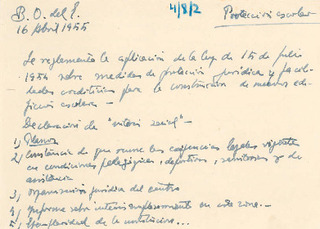 B.O. del E.
4/8/2
Protección escolar
16 Abril 1955
Se reglamenta la aplicación de la ley de 15 de julio
1954 sobre medidas de protección jurídica y facilidades
crediticias para la construcción de nuevos edi-
ficios escolares -
Declaración de "interés social" -
1) Planos
2) Constancia de que reune las exigencias legales vigentes
en condiciones pedagógicas, deportivas, sanitarias y de
3) organización jurídica del centro
4) informe sobre interés en esta zona. -
5) de la institución...